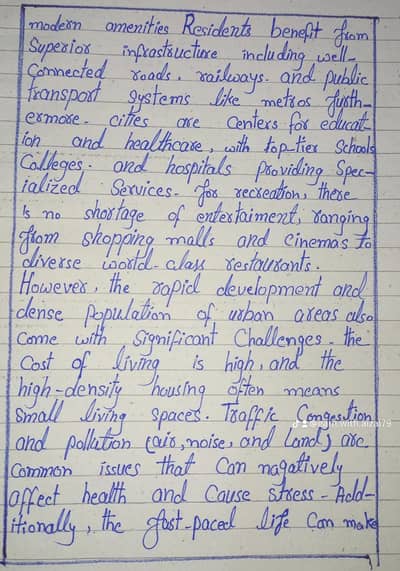 modern amenities Residents benefit from
Superior infrastructure including well-
Connected roads, railways. and public
transport systems like metros furth-
ermore. cities are Centers for educat-
ion and healthcare, with top-tier Schools
Colleges. and hospitals Providing Spec-
ialized Services. for recreation, there
is no shortage of entertaiment, ranging
from shopping malls and cinemas to
diverse world-class restaurants.
However, the rapid development and
dense population of urban areas also
Come with Significant Challenges. the
Cost of living is high, and the
high-density housing often means
Small living spaces. Traffic Congestion
and pollution (air, noise, and Land) are
Common issues that Can nagatively
affect health and Cause stress-Add-
itionally, the fast-paced life Can make